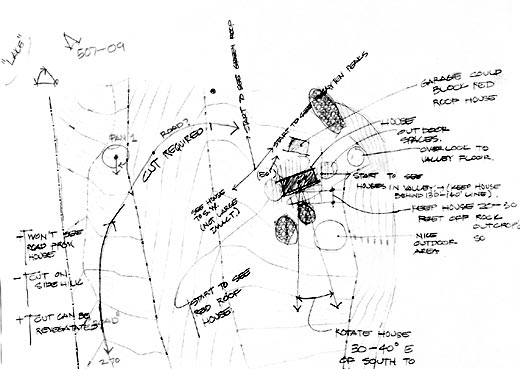 "LAKE"
507-09
START TO SEE GREEN ROOF
START TO SEE
TEN PEAKS
GARAGE COULD
BLOCK RED
ROOF HOUSE
HOUSE
OUTDOOR
SPACES.
OVERLOOK TO
VALLEY FLOOR.
ROAD?
CUT REQUIRED
PAN 1
START TO SEE
HOUSES IN VALLEY → (KEEP HOUSE
BEHIND 130-140' LINE).
SEE HOUSE
TO S.W.
(NOT LARGE
IMPACT)
KEEP HOUSE 20-30
FEET OFF ROCK
OUTCROP
NICE
OUTDOOR
AREA
SO
- WON'T SEE
ROAD FROM
HOUSE
- CUT ON
SIDE HILL
+ CUT CAN BE
REVEGETATED
START TO SEE
RED ROOF
HOUSE.
270
ROTATE HOUSE
30-40° E
OF SOUTH TO